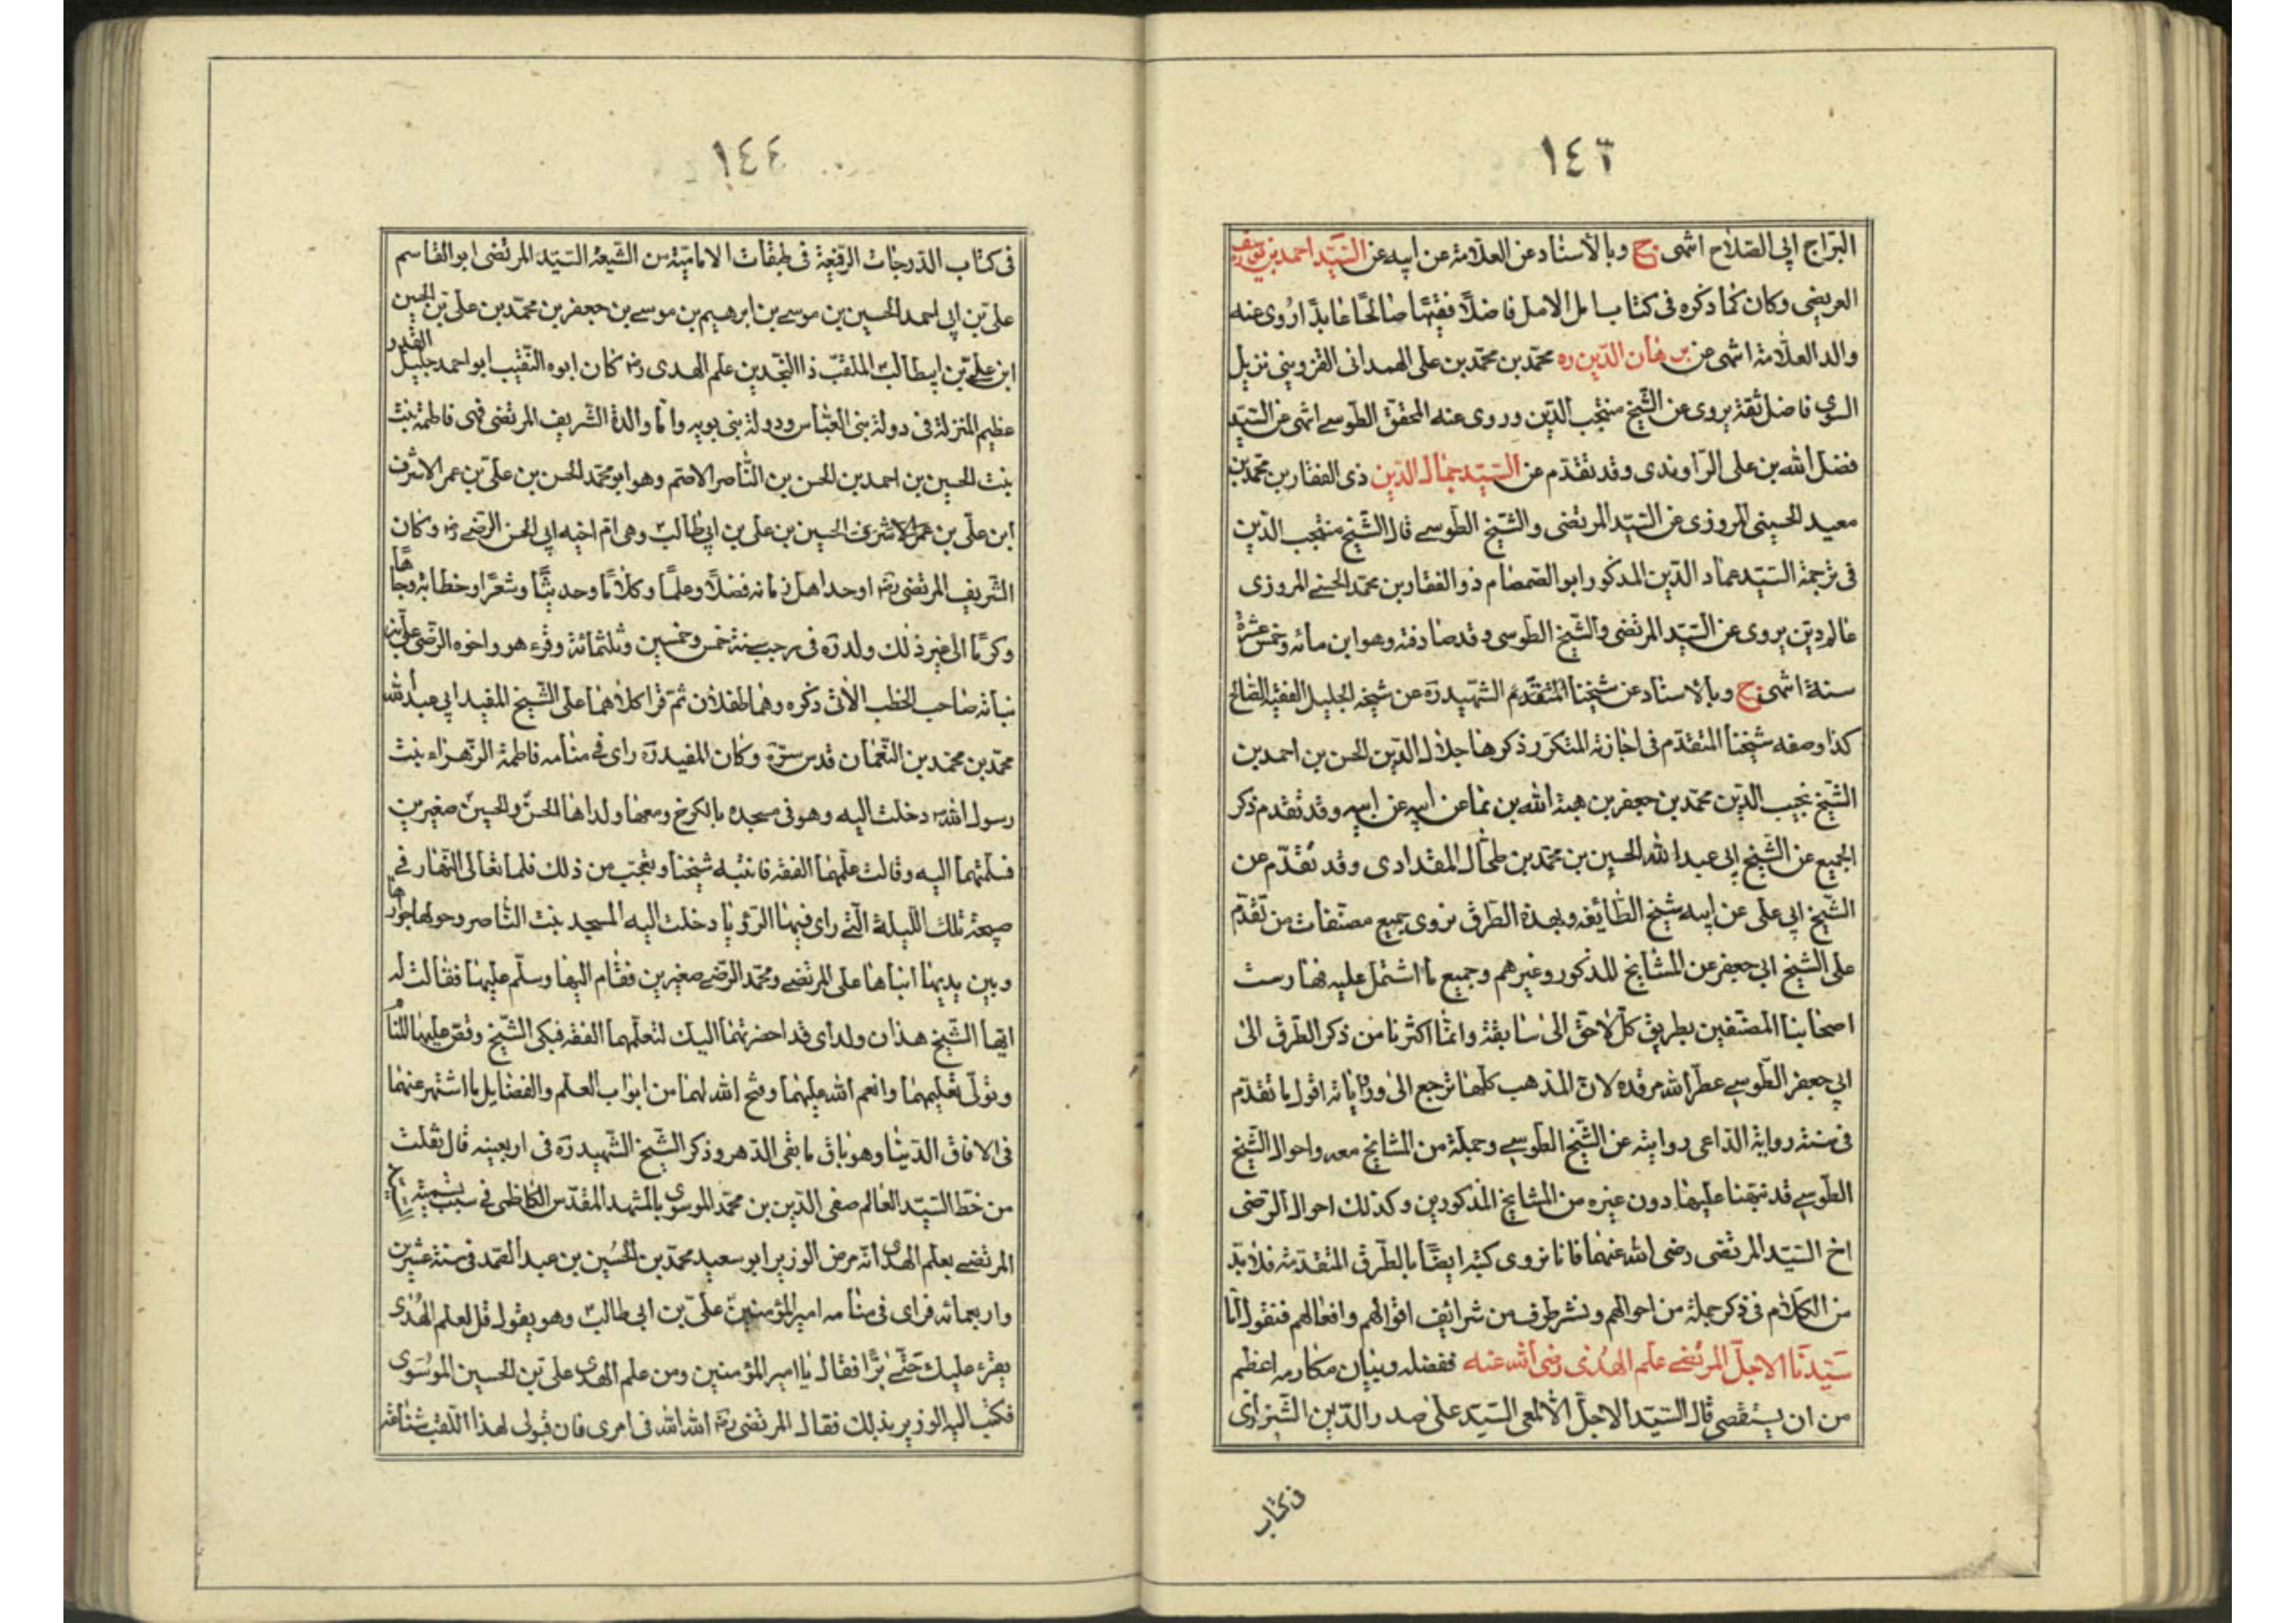 ١٤٣
البراج ابى الصلاح انتهى ح وبالاسناد عن العلامة عن ابيه عن السيد احمد بن يوسف
العريضى وكان كما ذكره فى كتاب امل الامل فاضلًا فقيهًا صالحًا عابدًا روى عنه
والد العلامة انتهى عن برهان الدين ره محمد بن محمد بن على الهمدانى القزوينى نزيل
الرى فاضل ثقة يروى عن الشيخ منتجب الدين وروى عنه المحقق الطوسے انتهى عن السيد
فضل الله بن على الراوندى وقد تقدم عن السيد جمال الدين ذى الفقار بن محمد بن
معبد الحسينى المروزى عن السيد المرتضى والشيخ الطوسے قال الشيخ منتجب الدين
فى ترجمة السيد عماد الدين المذكور ابو الصمصام ذو الفقار بن محمد الحسنے المروزى
عالم دين يروى عن السيد المرتضى والشيخ الطوسى وقد صادفته وهو ابن مأئه وخمس عشرة
سنة انتهى ح وبالاسناد عن شيخنا المتقدم الشهيد ره عن شيخه الجليل الفقيه الصالح
كذا وصفه شيخنا المتقدم فى اجازته المتكرر ذكرها جلال الدين الحسن بن احمد بن
الشيخ نجيب الدين محمد بن جعفر بن هبة الله بن نما عن ابيه عن ابيه وقد تقدم ذكر
الجميع عن الشيخ ابى عبد الله الحسين بن محمد بن طحال المقدادى وقد تقدم عن
الشيخ ابى على عن ابيه شيخ الطائفه وبهذه الطرق نروى جميع مصنفات من تقدم
على الشيخ ابى جعفر عن المشايخ المذكور وغيرهم وجميع ما اشتمل عليه فهارست
اصحابنا المصنفين بطريق كل لاحق الى سابقة وانما اكثرنا من ذكر الطرق الى
ابى جعفر الطوسے عطر الله مرقده لان المذهب كلها ترجع الى رواياته اقول ما تقدم
فى منته رواية الداعى روايته عن الشيخ الطوسے وجملة من المشايخ معه واحوال الشيخ
الطوسے قد نبهنا عليها دون غيره من المشايخ المذكورين وكذلك احوال الرضى
اخ السيد المرتضى رضى الله عنهما فانا نروى كتبه ايضًا بالطرق المتقدمة فلا بد
من الكلام فى ذكر جملة من احوالهم ونشر طرف من شرائف اقوالهم وافعالهم فنقول اما
سيدنا الاجل المرتضے علم الهدى رضى الله عنه ففضله وبيان مكارمه اعظم
من ان يستقصى قال السيد الاجل الالمعى السيد على صدر الدين الشيرازى
فى كتاب
١٤٤
فى كتاب الدرجات الرفيعة فى طبقات الامامية من الشيعة السيد المرتضى ابو القاسم
على بن ابى احمد الحسين بن موسے بن ابرهيم بن موسے بن جعفر بن محمد بن على بن الحسين
ابن على بن ابيطالبؑ الملقب ذا المجدين علم الهدى رض كان ابوه النقيب ابو احمد جليل القدر
عظيم المنزلة فى دولة بنى العباس ودولة بنى بويه واما والدة الشريف المرتضى فهى فاطمة بنت
بنت الحسين بن احمد بن الحسن بن الناصر الاصم وهو ابو محمد الحسن بن على بن عمر الاشرف
ابن على بن عمر الاشرف الحسين بن على بن ابى طالبؑ وهى ام اخيه ابى الحسن الرضے رض وكان
الشريف المرتضى ره اوحد اهل زمانه فضلًا وعلمًا وكلامًا وحديثًا وشعرًا وخطابة وجاهًا
وكرمًا الى غير ذلك ولد ره فى رجب سنة خمس وخمسين وثلثمائة وقرء هو واخوه الرضى على بن
نباته صاحب الخطب الآتى ذكره وهما طفلان ثم قرا كلاهما على الشيخ المفيد ابى عبد الله
محمد بن محمد بن النعمان قدس سره وكان المفيد ره راى فى منامه فاطمة الزهراء بنت
رسول اللهؐ دخلت اليه وهو فى مسجده بالكرخ ومعها ولداها الحسنؑ والحسينؑ صغيرين
فسلمتهما اليه وقالت علمهما الفقه فانتبه شيخنا وتعجب من ذلك فلما تعالى النهار فى
صبيحة تلك الليلة التے راى فيها الرؤيا دخلت اليه المسجد بنت الناصر وحولها جوارها
وبين يديها ابناها على المرتضے ومحمد الرضے صغيرين فقام اليها وسلم عليها فقالت له
ايها الشيخ هذان ولداى قد احضرتهما اليك لتعلمهما الفقه فبكى الشيخ وقص عليها المنام
وتولى تعليمهما وانعم الله عليهما وفتح الله لهما من ابواب العلم والفضايل ما اشتهر عنهما
فى الافاق الدنيا وهو باق ما بقى الدهر وذكر الشيخ الشهيد ره فى اربعينه قال نقلت
من خط السيد العالم صفى الدين بن محمد الموسوى بالمشهد المقدس الكاظمى فى سبب تسمية
المرتضے بعلم الهدى انه مرض الوزير ابو سعيد محمد بن الحسين بن عبد الصمد فى سنة عشرين
واربعمائه فراى فى منامه امير المؤمنين على بن ابى طالبؑ وهو يقول قل لعلم الهدى
يقرء عليك حتے تبرأ فقال يا امير المؤمنين ومن علم الهدى على بن الحسين الموسوى
فكتب اليه الوزير بذلك فقال المرتضى ره الله الله فى امرى فان قبولى لهذا اللقب شناعة